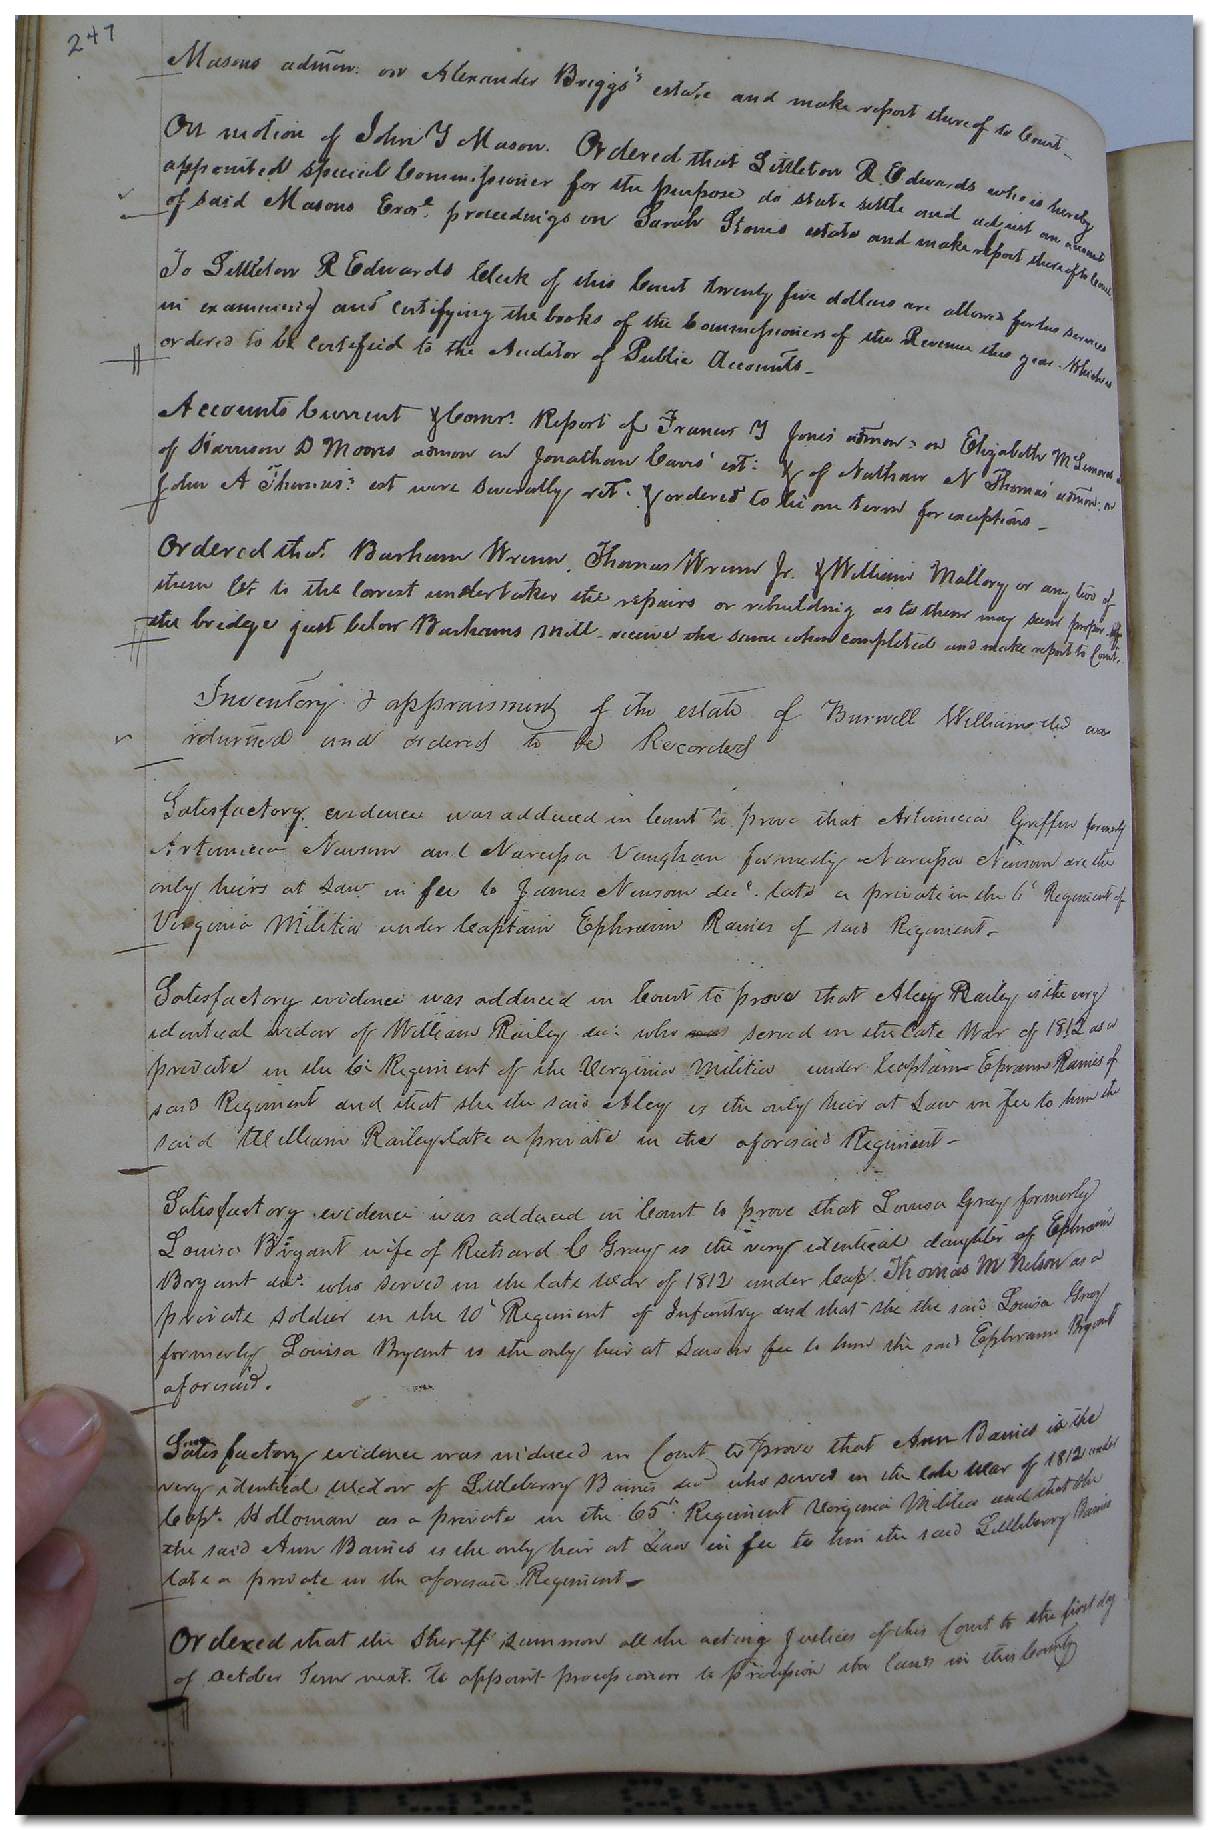 247
Masons admon: on Alexander Briggs's estate and make report thereof to Court -
On motion of John Y Mason. Ordered that Littleton R Edwards who is hereby
appointed special Commissioner for the purpose do state settle and adjust an account
of said Masons Exor. proceedings on Sarah estate and make report thereof to Court
To Littleton R Edwards Clerk of this Court twenty five dollars are allowed for his services
in examining and certifying the books of the Commissioners of the Revenue this year. Which is
ordered to be certified to the Auditor of Public Accounts -
Accounts Current & Comrs. Report of Francis Y Jones admon: on Elizabeth
of Harrison D Moores admon on Jonathan est: & of Nathan N Thomas' admon: on
John A Thomas: est were severally ret. & ordered to lie one term for exceptions -
Ordered that Barham Wrenn, Thomas Wrenn Jr. & William Mallory or any two of
them let to the lowest undertaker the repairs or rebuilding as to them may seem proper of
the bridge just below Barhams Mill - receive the same when completed and make report to Court.
Inventory & appraisment of the estate of Burwell Williams dcd was
returned and ordered to be Recorded
Satisfactory evidence was adduced in Court to prove that Artimecia Griffin formerly
Artimecia Newsom and Narcissa Vaughan formerly Narcissa Newsom are the
only heirs at Law in fee to James Newsom decd. late a private in the Regiment of
Virginia Militia under Captain Ephraim Raines of said Regiment -
Satisfactory evidence was adduced in Court to prove that Aley Railey is the very
identical widow of William Railey dec: who was served in the late War of 1812 as a
private in the Regiment of the Verginia Militia under Captain Epraim Raines of
said Regiment and that she the said Aley is the only heir at Law in fee to him the
said William Railey late a private in the aforesaid Regiment -
Satisfactory evidence was adduced in Court to prove that Louisa Gray formerly
Louisa Bryant wife of Richard C Gray is the very identical daughter of Ephraim
Bryant decd. who served in the late war of 1812 under Cap. Thomas M Nelson as a
private soldier in the 10t Regiment of Infantry and that she the said Louisa Gray
formerly Louisa Bryant is the only heir at Law in fee to him the said Ephraim Bryant
aforesaid.
Satisfactory evidence was adduced in Court to prove that Ann Baines is the
very identical widow of Littleberry Baines decd who served in the late war of 1812 under
Capt. Holloman as a private in the 65th Regiment Verginia Militia and that she
the said Ann Baines is the only heir at Law in fee to him the said Littleberry Baines
late a private in the aforesaid Regiment -
Ordered that the Sheriff summon all the acting Justices of this Court to the first day
of October Term next. to appoint processioners to procession the lands in this County